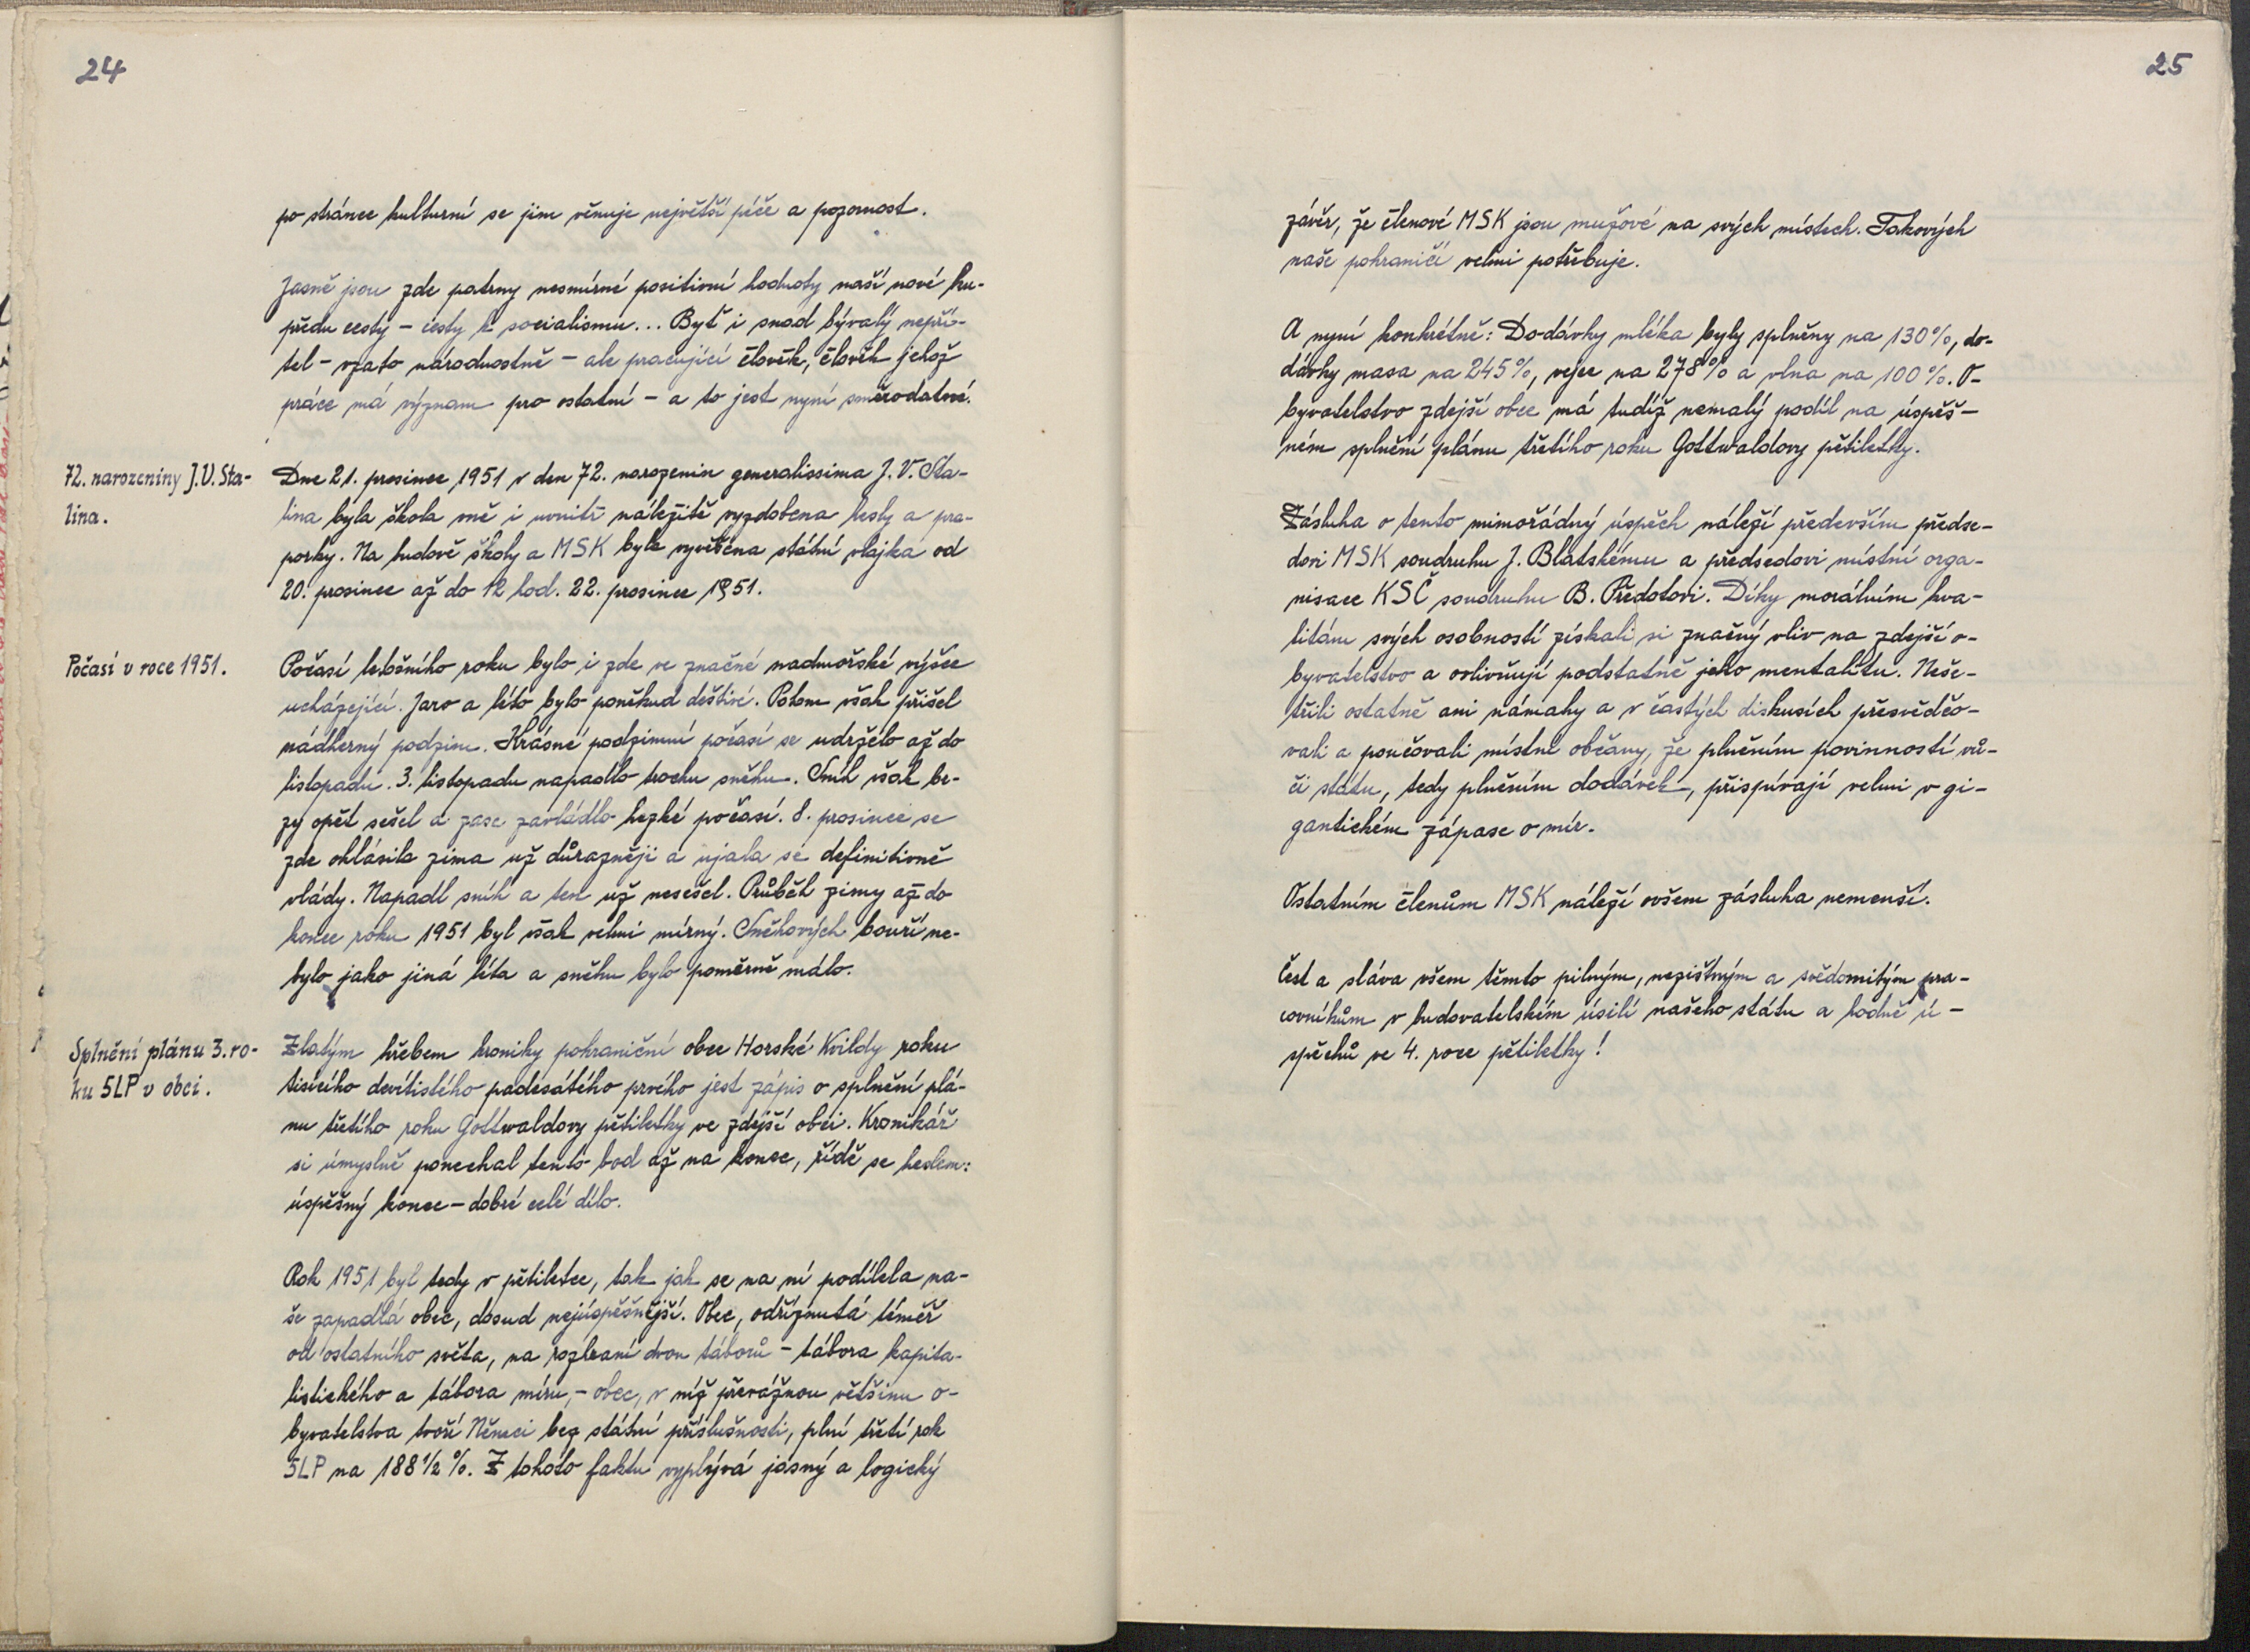 24
po stránce kulturní se jim věnuje největší péče a pozornost.
Jasně jsou zde patrny nesmírné positivní hodnoty naší nové ku-
předu cesty - cesty k socialismu... Byť i snad bývalý nepřá-
tel - vzato národnostně - ale pracující člověk, člověk jehož
práce má význam pro ostatní - a to jest nyní směrodatné.
72. narozeniny J.V. Sta-
lina.
Dne 21. prosince 1951 v den 72. narozenin generalissima J.V. Sta-
lina byla škola vně i uvnitř náležitě vyzdobena hesly a pra-
porky. Na budově školy a MSK byla vyvěšena státní vlajka od
20. prosince až do 12 hod. 22. prosince 1951.
Počasí v roce 1951.
Počasí letošního roku bylo i zde ve značné nadmořské výšce
ucházející. Jaro a léto bylo poněkud deštivé. Potom však přišel
nádherný podzim. Krásné podzimní počasí se udrželo až do
listopadu. 3. listopadu napadlo trochu sněhu. Sníh však br-
zy opět sešel a zase zavládlo hezké počasí. 8. prosince se
zde ohlásila zima už důrazněji a ujala se definitivně
vlády. Napadl sníh a ten už nesešel. Průběh zimy až do
konce roku 1951 byl však velmi mírný. Sněhových bouří ne-
bylo jako jiná léta a sněhu bylo poměrně málo.
Splnění plánu 3. ro-
ku 5LP v obci.
Zlatým hřebem kroniky pohraniční obce Horské Kvildy roku
tisícího devítistého padesátého prvého jest zápis o splnění plá-
nu třetího roku Gottwaldovy pětiletky ve zdejší obci. Kronikář
si úmyslně ponechal tento bod až na konec, řídě se heslem:
úspěšný konec - dobré celé dílo.
Rok 1951 byl tedy v pětiletce, tak jak se na ní podílela na-
še zapadlá obec, dosud nejúspěšnější. Obec, odříznutá téměř
od ostatního světa, na rozhraní dvou táborů - tábora kapita-
listického a tábora míru, - obec, v níž převážnou většinu o-
byvatelstva tvoří Němci bez státní příslušnosti, plní třetí rok
5LP na 188 1/2 %. Z tohoto faktu vyplývá jasný a logický
25
závěr, že členové MSK jsou mužové na svých místech. Takových
naše pohraničí velmi potřebuje.
A nyní konkrétně: Dodávky mléka byly splněny na 130%, do-
dávky masa na 245%, vejce na 278% a vlna na 100%. O-
byvatelstvo zdejší obce má tudíž nemalý podíl na úspěš-
ném splnění plánu třetího roku Gottwaldovy pětiletky.
Zásluha o tento mimořádný úspěch náleží především předse-
dovi MSK soudruhu J. Blatskému a předsedovi místní orga-
nisace KSČ soudruhu B. Předotovi. Díky morálním kva-
litám svých osobností získali si značný vliv na zdejší o-
byvatelstvo a ovlivňují podstatně jeho mentalitu. Neše-
třili ostatně ani námahy a v častých diskusích přesvědčo-
vali a poučovali místní občany, že plněním povinností vů-
či státu, tedy plněním dodávek, přispívají velmi v gi-
gantickém zápase o mír.
Ostatním členům MSK náleží ovšem zásluha nemenší.
Čest a sláva všem těmto pilným, nezištným a svědomitým pra-
covníkům v budovatelském úsilí našeho státu a hodně ú-
spěchů ve 4. roce pětiletky!